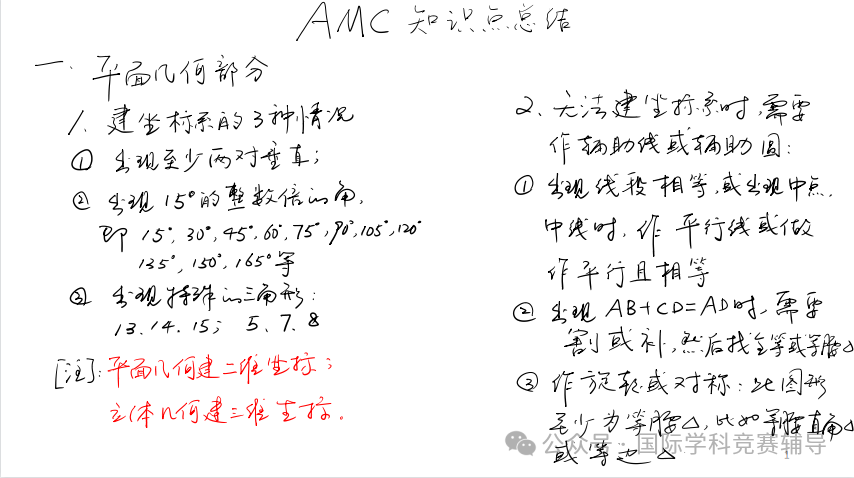 AMC 知识点总结
一. 平面几何部分
1. 建坐标系的3种情况
① 出现至少两对垂直;
② 出现15°的整数倍的角,
即 15°, 30°, 45°, 60°, 75°, 90°, 105°, 120°
135°, 150°, 165°等
③ 出现特殊的三角形:
13.14.15; 5.7.8
[注]: 平面几何建二维坐标;
立体几何建三维坐标.
2. 无法建坐标系时,需要
作辅助线或辅助圆:
① 出现线段相等,或出现中点,
中线时, 作平行线或做
作平行且相等
② 出现 AB+CD=AD时, 需要
割或补,然后找全等或等腰△
③ 作旋转或对称: 此图形
至少为等腰△, 比如等腰直角△
或等边△
公众号·国际学科竞赛辅导
1